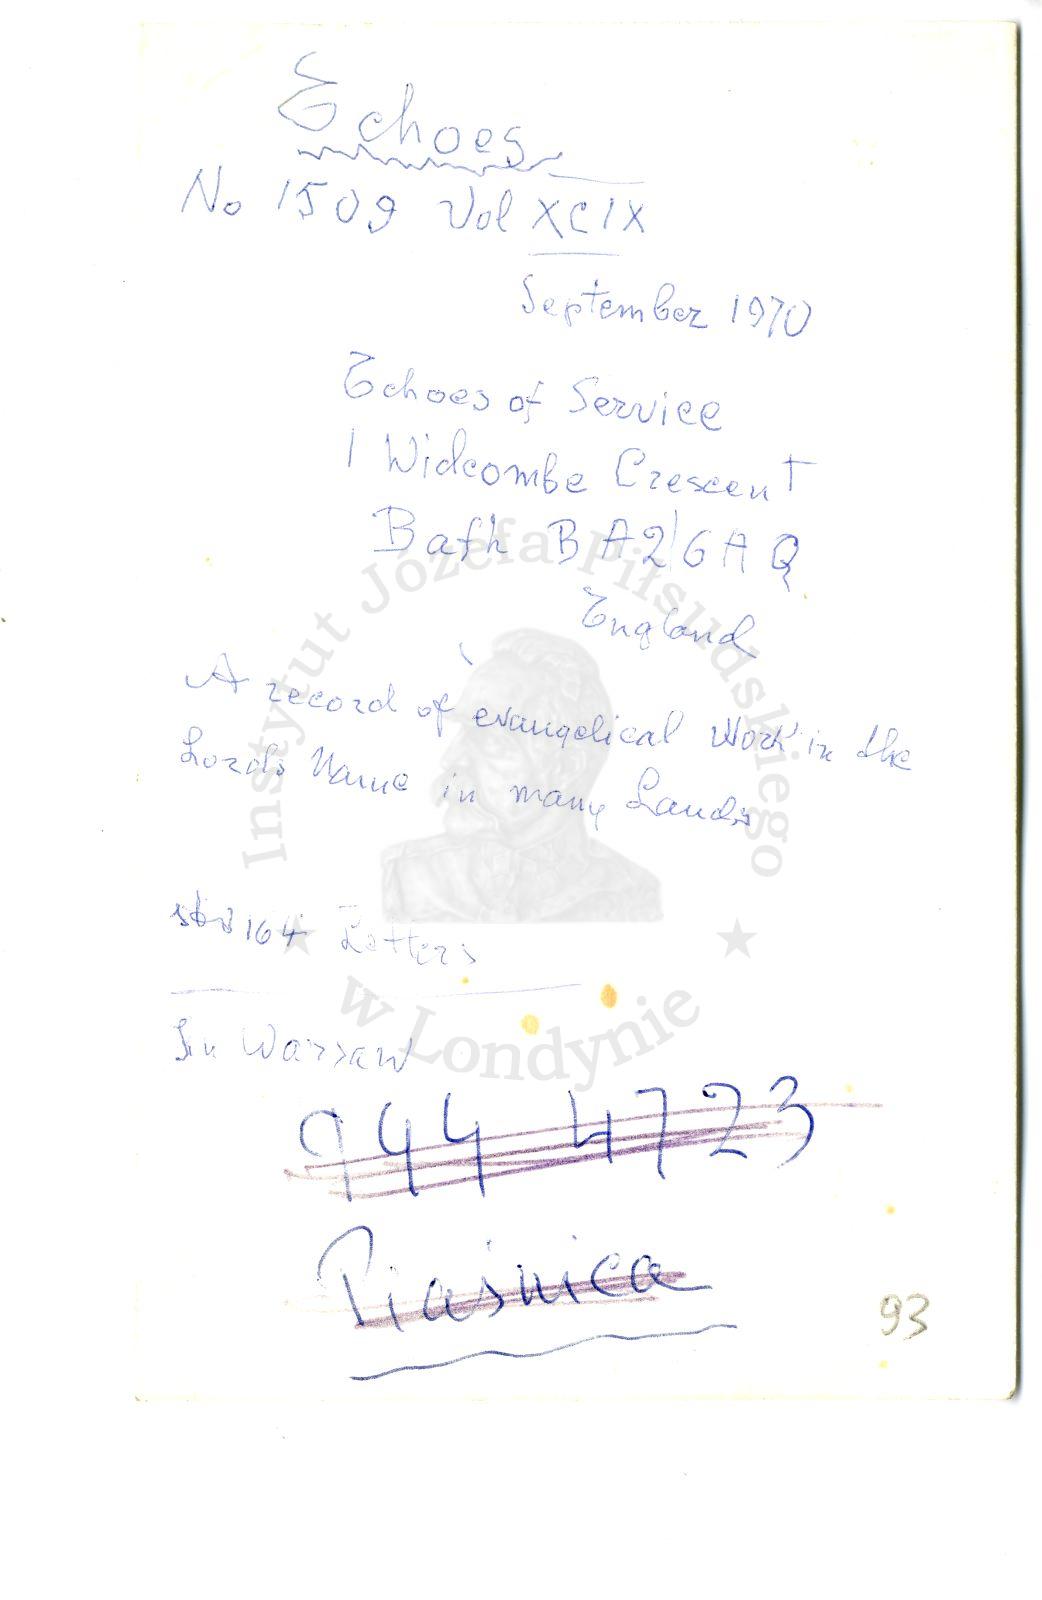 Echoes
No 1509 Vol XCIX
September 1970
Echoes of Service
1 Widcombe Crescent
Bath BA2 6AQ
England
A record of evangelical work in the
Lords Name in many Lands
164 Letters
In Warsaw
944 4723
Piaśnica
93
Instytut Józefa Piłsudskiego
w Londynie